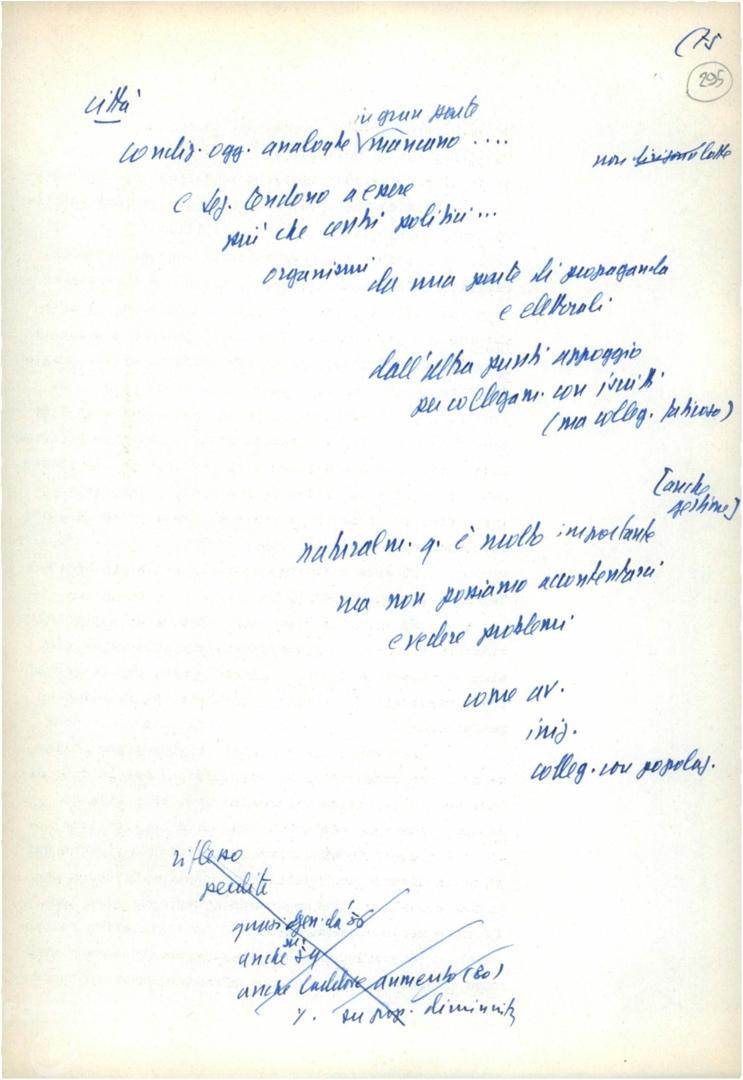 (75
295
città
in gran parte
condiz. ogg. analoghe mancano ....
non
e sez. tendono a essere
più che centri politici...
organismi da una parte di propaganda
e elettorali
dall'altra punti appoggio
per collegam. con iscritti
(ma colleg. faticoso)
[anche
gestione]
naturalm. q. è molto importante
ma non possiamo accontentarci
e vedere problemi
come av.
iniz.
colleg. con popolaz.
riflesso
perdite
quasi da '56
anche su '59
anche laddove aumento (80)
% su pop. diminuita